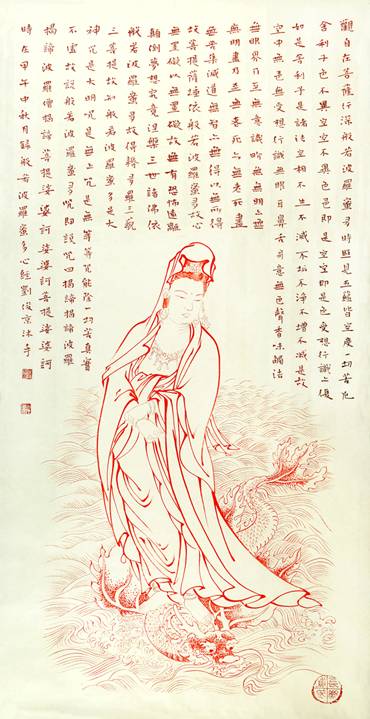 觀自在菩薩行深般若波羅蜜多時照見五蘊皆空度一切苦厄
舍利子色不異空空不異色色即是空空即是色受想行識亦復
如是舍利子是諸法空相不生不滅不垢不淨不增不減是故
空中無色無受想行識無眼耳鼻舌身意無色聲香味觸法
無眼界乃至無意識界無無明亦
無無明盡乃至無老死亦無老死盡
無苦集滅道無智亦無得以無所得
故菩提薩埵依般若波羅蜜多故心
無罣礙以無罣礙故無有恐怖遠離
顛倒夢想究竟涅槃三世諸佛依
般若波羅蜜多故得耨多羅三藐
三菩提故知般若波羅蜜多是大
神咒是大明咒是無上咒是無等等咒能除一切苦真實
不虛故說般若波羅蜜多咒即說咒曰揭諦揭諦波羅
揭諦波羅僧揭諦菩提婆婆訶婆婆訶菩提婆訶
時在甲午中秋月録般若波羅蜜多心經劉俊京沐手